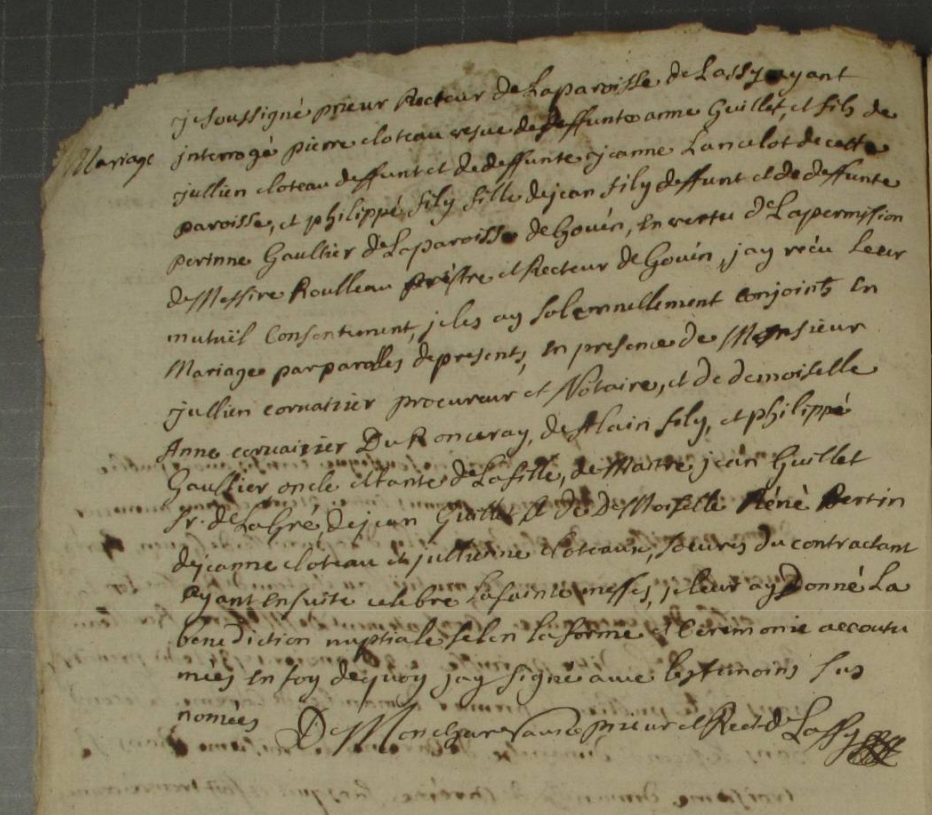 je soussigné prieur Recteur de La paroisse de Lassy ayant
Mariage
interrogé pierre cloteau vefue de deffunte anne Guillet, et fils de
jullien cloteau deffunt et de deffunte jeanne Lancelot de cette
paroisse, et philippé fily fille de jean fily deffunt et de deffunte
perinne Gaultier de La paroisse de Govén, en vertu de La permission
de Messire Roulleau prestre et Recteur de Govén, j ay recu Leur
mutuël Consentement, je les ay solemnellement conjoints en
Mariage par parolles de presents, en presence de Monsieur
jullien corvaisier procureur et Notaire, et de demoiselle
Anne corvaisier Du Ronceray, de Alain fily, et philippé
Gaultier oncle et tante de La fille, de Maitre jean Guillet
Sr. de La Gré, de jean Guillet et de DeMoiselle Réné Bertin
de jeanne cloteau et jullienne cloteaux, soeures du contractant
ayant ensuite celebre La sainte messe, je leur ay Donné La
benediction nuptiale selon La forme et Ceremonie accoutu
mées en foy de quoy j ay signé avec les temoins sus
nomées De prieur et Rect. de Lassy